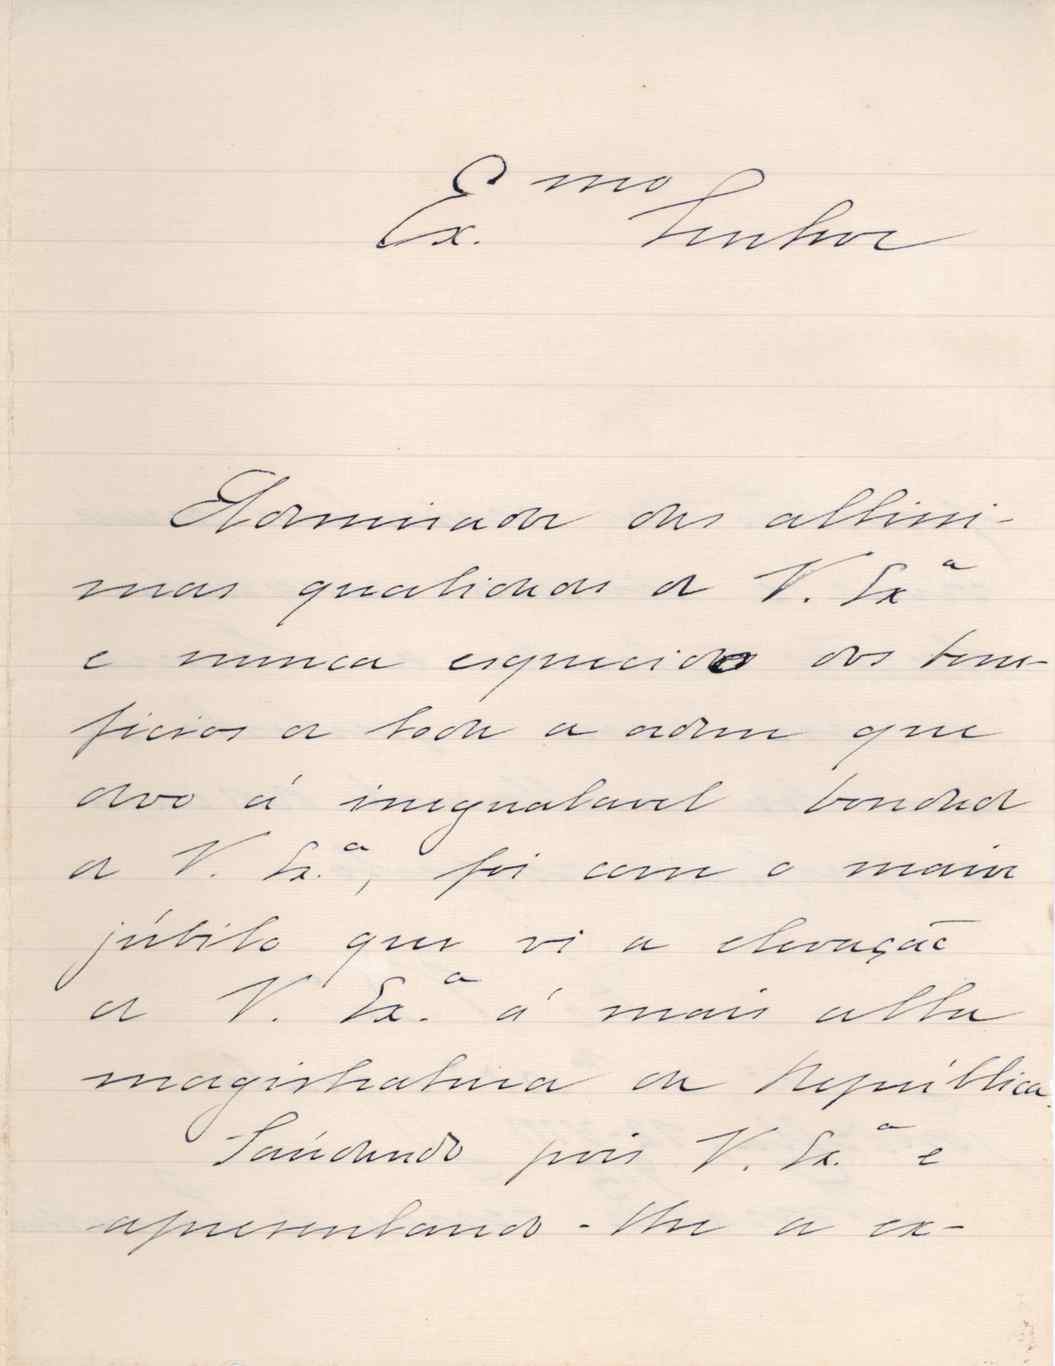 Ex.mo Senhor
Admirador das altissi-
mas qualidades de V. Exa
e nunca esquecido dos bene-
ficios de toda a ordem que
devo á inegualavel bondade
de V. Ex.a, foi com o maior
júbilo que vi a elevação
de V. Ex.a á mais alta
magistratura da República.
Saúdando pois V. Ex.a e
apresentando-lhe a ex-